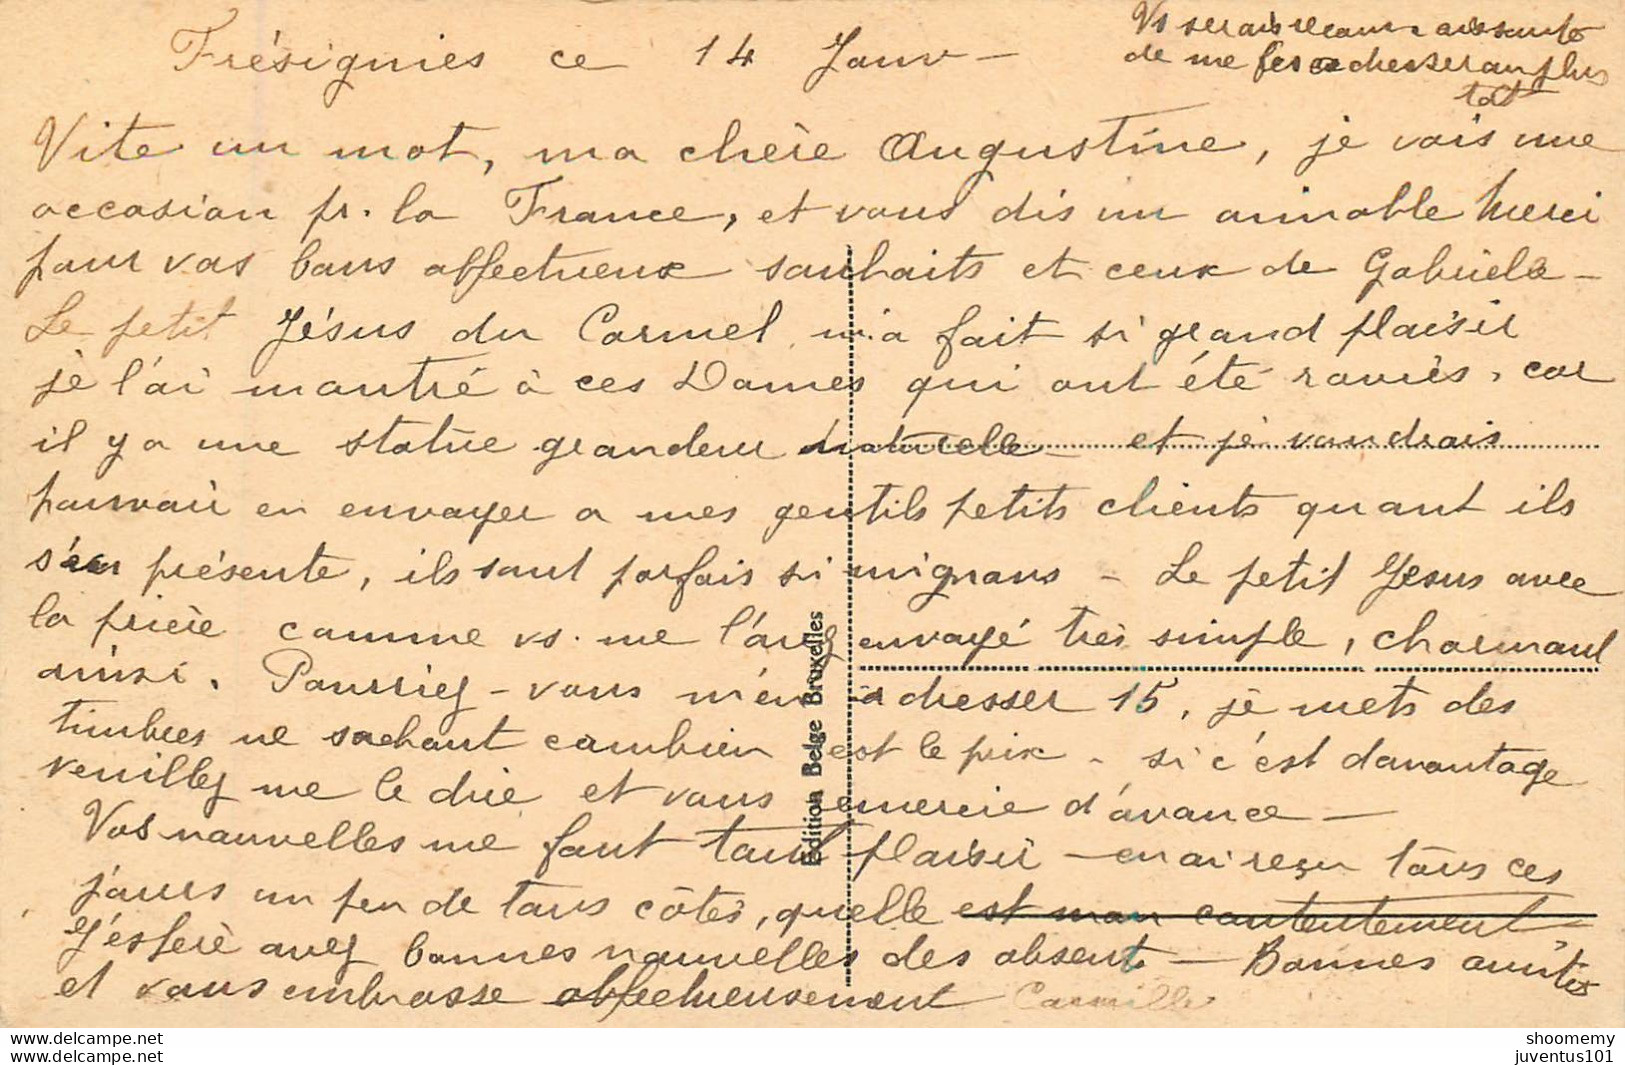 Frésignies ce 14 Janv -
Vs serais reconnaissante
de me les adresser au plus
tôt
Vite un mot, ma chère Augustine, je vais une
occasion pr. la France, et vous dis un aimable Merci
pour vos bons affectueux souhaits et ceux de Gabriele -
Le petit Jésus du Carmel m'a fait si grand plaisir
je l'ai montré à ces Dames qui ont été ravies, car
il y a une statue grandeur naturelle - et je voudrais
pouvoir en envoyer a mes gentils petits clients quant ils
s'en présente, ils sont parfois si mignons - Le petit Jesus avec
la prière comme vs. me l'avez envoyé très simple, charmant
ainsi. Pourriez-vous m'en adresser 15, je mets des
timbres ne sachant combien est le prix - si c'est davantage
veuillez me le dire et vous remercie d'avance -
Vos nouvelles me font tant plaisir - en ai reçu tous ces
jours un peu de tous côtés, quelle est mon contentement
J'espère avez bonnes nouvelles des absents - Bonnes amitiés
et vous embrasse affectueusement Camille
Edition Belge Bruxelles
www.delcampe.net
www.delcampe.net
shoomemy
juventus101